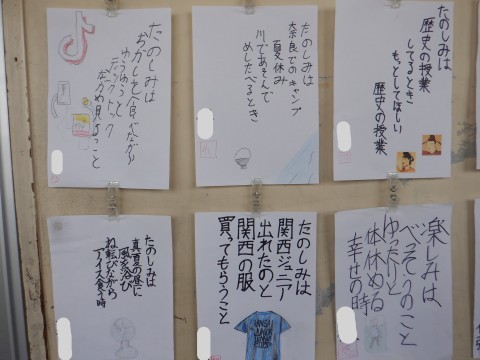 たのしみは
歴史の授業
してるとき
もっとしてほしい
歴史の授業
たのしみは
奈良でのキャンプ
夏休み
川であそんで
めしたべるとき
たのしみは
おかしを食べながら
ゆうゆうと
ティックトック
ながめ見ること
楽しみは、
べっそうのこと
ゆったりと
体休める
幸せの時
たのしみは
関西ジュニア
出れたのと
関西の服
買ってもらうこと
たのしみは
真夏の昼に
風を浴び
ね転びながら
アイス食う時